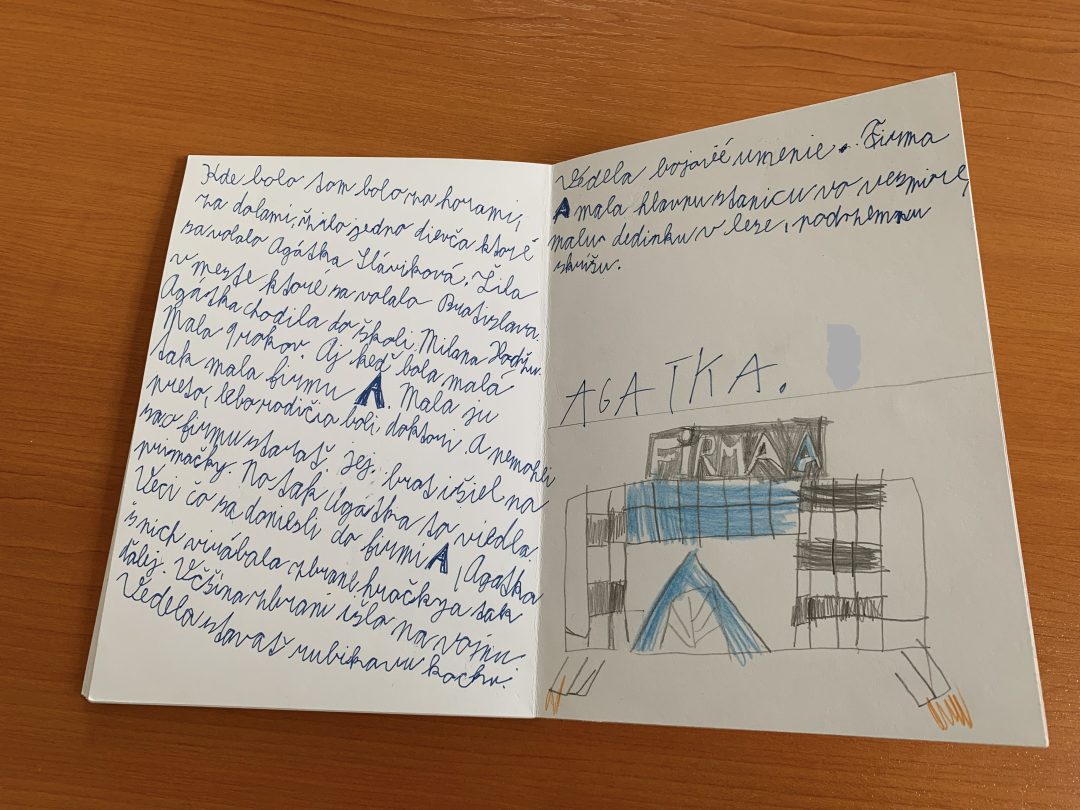 Kde bolo tam bolo za horami,
za dolami, žilo jedno dievča ktoré
sa volalo Agátka Sláviková. Žila
v meste ktoré sa volalo Bratislava.
Agátka chodila do školi Milana Hodžu.
Mala 9 rokov. Aj keď bola malá
tak mala firmu A. Mala ju
preto, lebo rodičia boli doktori. A nemohli
sa o firmu starať. jej brat išiel na
prímačky. No tak Agátka to viedla.
Veci čo sa doniesli do firmi A, Agatka
s nich virábala zbrane, hračky a tak
ďalej. Včšina zbraní išla na vojnu.
Vedela stavať rubikovu kocku.
Vedela bojové umenie. Firma
A mala hlavnu stanicu vo vesmíre,
malu dedinku v lese, podzemnu
skríšu.
AGATKA.
FiRMA A